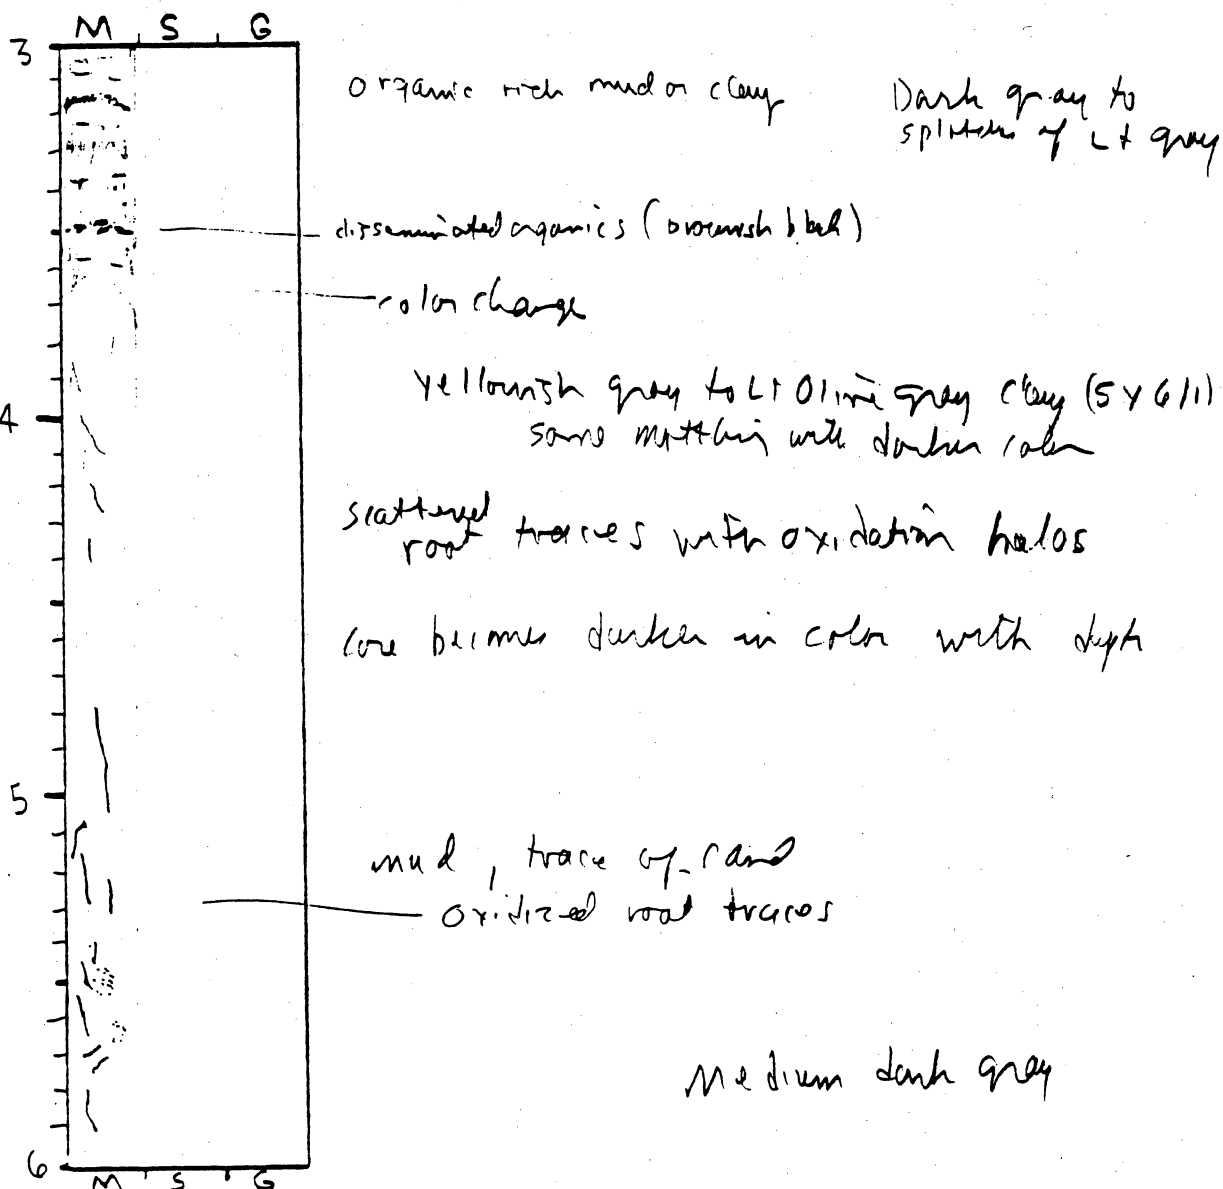 M S G
3
Organic rich mud or clay
Dark gray to
splotches of Lt gray
disseminated organics (brownish black)
color change
yellowish gray to Lt Olive gray clay (5Y 6/1)
4
some mottling with darker color
scattered
root traces with oxidation halos
core becomes darker in color with depth
5
mud, trace of sand
oxidized root traces
Medium dark gray
6
M S G